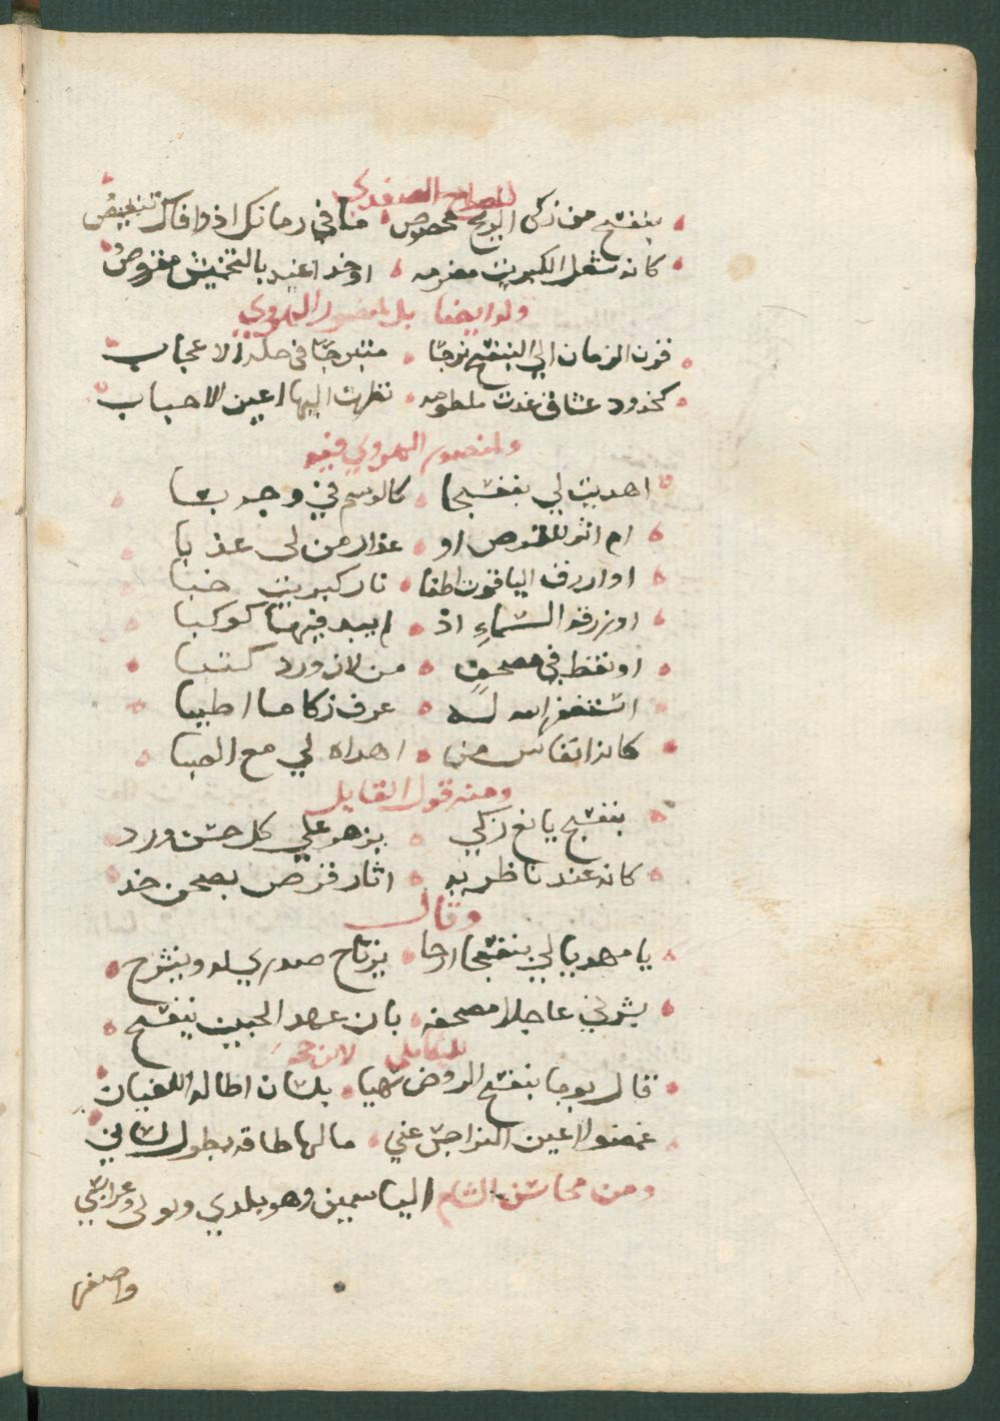 للصلاح الصفدي
بنفسج من زكي الريح مخصوص ما في زمانك اذ وافاك تنغيص
كانه شعل الكبريت مضرمه او خد اغيد بالتخميش مقروص
وله ايضا بل لمنصور الهروي
قرن الزمان الي البنفسج نرجسا متبرجا في حلة الاعجاب
كخدود عشاق غدت ملطومه نظرت اليها اعين الاحباب
ولمنصور الهروي فيه
اهديت لي بنفسجا كالوسم في وجه
ام اثر للقرص او عذار من لي عذبا
او ازرق الياقوت اطفا نار كبريت خبا
او زرقة السماء اذ لم يبد فيها كوكبا
او نقط في مصحف من لازورد كتبا
استغفر الله له عرف زكاها اطيبا
كانه انفاس من اهداه لي مع الصبا
ومنه قول القايل
بنفسج يانع زكي يزهو علي كل حسن ورد
كانه عند ناظريه اثار قرص بصحن خد
وقال
يا مهديا لي بنفسجا ارجا يرتاح صدري له وينشرح
بشرني عاجلا مصحفه بان عهد الحبيب ينفسح
لابن
قال يوما بنفسج الروض تيها بلسان اطاله للغيان
غمضوا اعين النراجس عني ما لها طاقه بطول لساني
ومن محاسن الشام الياسمين وهو بلدي و وعراتشي
واصفر